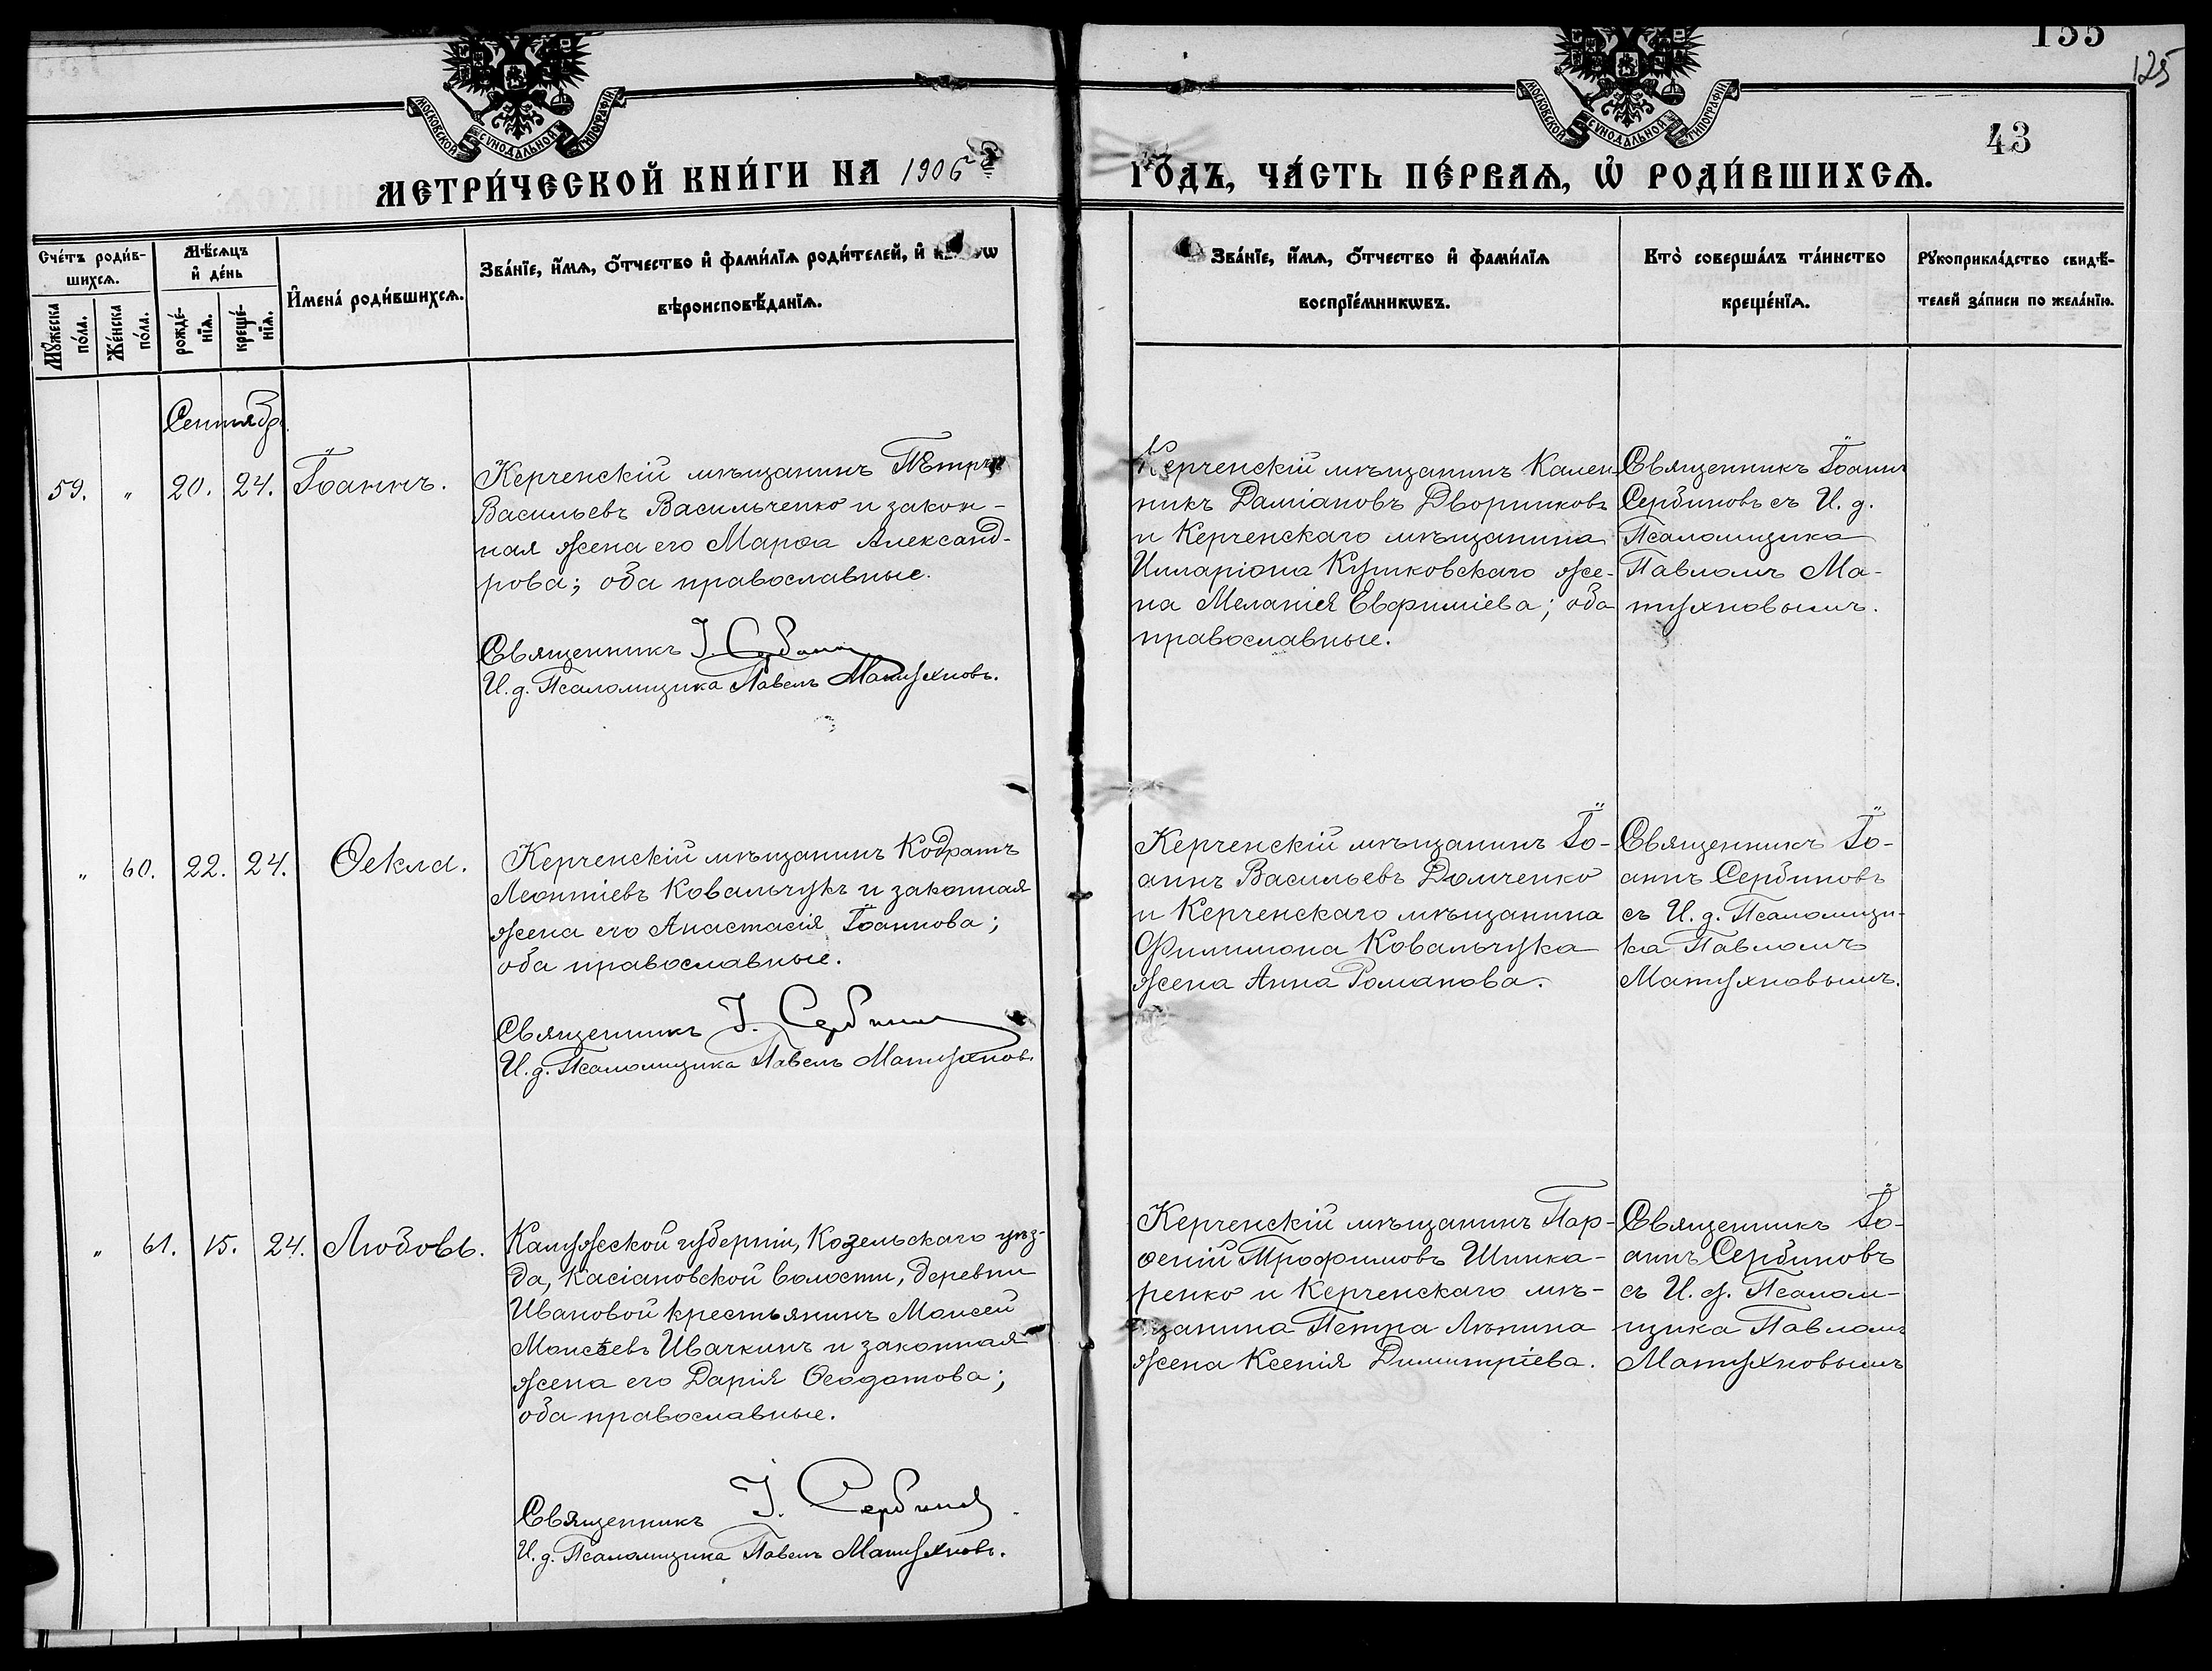 155
125
43
МОСКОВСКОЙ СѴНОДАЛЬНОЙ ТИПОГРАФІИ
МОСКОВСКОЙ СѴНОДАЛЬНОЙ ТИПОГРАФІИ
МЕТРИ́ЧЕСКОЙ КНИ́ГИ НА 1906
ГО́ДЪ, ЧА́СТЬ ПЕ́РВАѦ, Ѡ҆ РОДИ́ВШИХСѦ.
Сче́тъ роди́в-
шихсѧ.
Мꙋ́жеска по́ла.
Же́нска по́ла.
Мѣ́сѧцъ
и҆ де́нь
рожде́-
нїѧ.
креще́-
нїѧ.
И҆мена́ роди́вшихсѧ.
Зва́нїе, и҆́мѧ, ѻ҆́тчество и҆ фами́лїѧ роди́телей, и҆
вѣроисповѣ́данїѧ.
Зва́нїе, и҆́мѧ, ѻ҆́тчество и҆ фами́лїѧ
воспрїе́мникѡвъ.
Кто̀ соверша́лъ та́инство
креще́нїѧ.
Рꙋкоприкла́дство свидѣ́-
телей за́писи по жела́нїю.
Сентябрь
59. „ 20. 24. Іоаннъ.
Керченскій мѣщанинъ Петръ
Васильевъ Васильченко и закон-
ная жена его Марѳа Александ-
рова; оба православные.
Священникъ І. Сербиновъ
И. д. Псаломщика Павелъ Матухновъ.
Керченскій мѣщанинъ Кален
никъ Даміановъ Дворниковъ
и Керченскаго мѣщанина
Илларіона Кушковскаго же-
на Меланія Евфиміева; оба
православные.
Священникъ Іоаннъ
Сербиновъ съ И. д.
Псаломщика
Павломъ Ма-
тухновымъ.
„ 60. 22. 24. Ѳекла.
Керченскій мѣщанинъ Кодратъ
Леонтіевъ Ковальчукъ и законная
жена его Анастасія Іоаннова;
оба православные.
Священникъ І. Сербиновъ
И. д. Псаломщика Павелъ Матухновъ.
Керченскій мѣщанинъ Іо-
аннъ Васильевъ Домченко
и Керченскаго мѣщанина
Филимона Ковальчука
жена Анна Романова.
Священникъ Іо-
аннъ Сербиновъ
съ И. д. Псаломщи-
ка Павломъ
Матухновымъ.
„ 61. 15. 24. Любовь.
Калужской губерніи, Козельскаго уѣз-
да, Касіановской волости, деревни
Ивановой крестьянинъ Моисей
Моисеевъ Ивачкинъ и законная
жена его Дарія Ѳеодотова;
оба православные.
Священникъ І. Сербиновъ
И. д. Псаломщика Павелъ Матухновъ.
Керченскій мѣщанинъ Пар-
ѳеній Трофимовъ Шинка-
ренко и Керченскаго мѣ-
щанина Петра Лѣнина
жена Ксенія Димитріева.
Священникъ Іо-
аннъ Сербиновъ
съ И. д. Псалом-
щика Павломъ
Матухновымъ